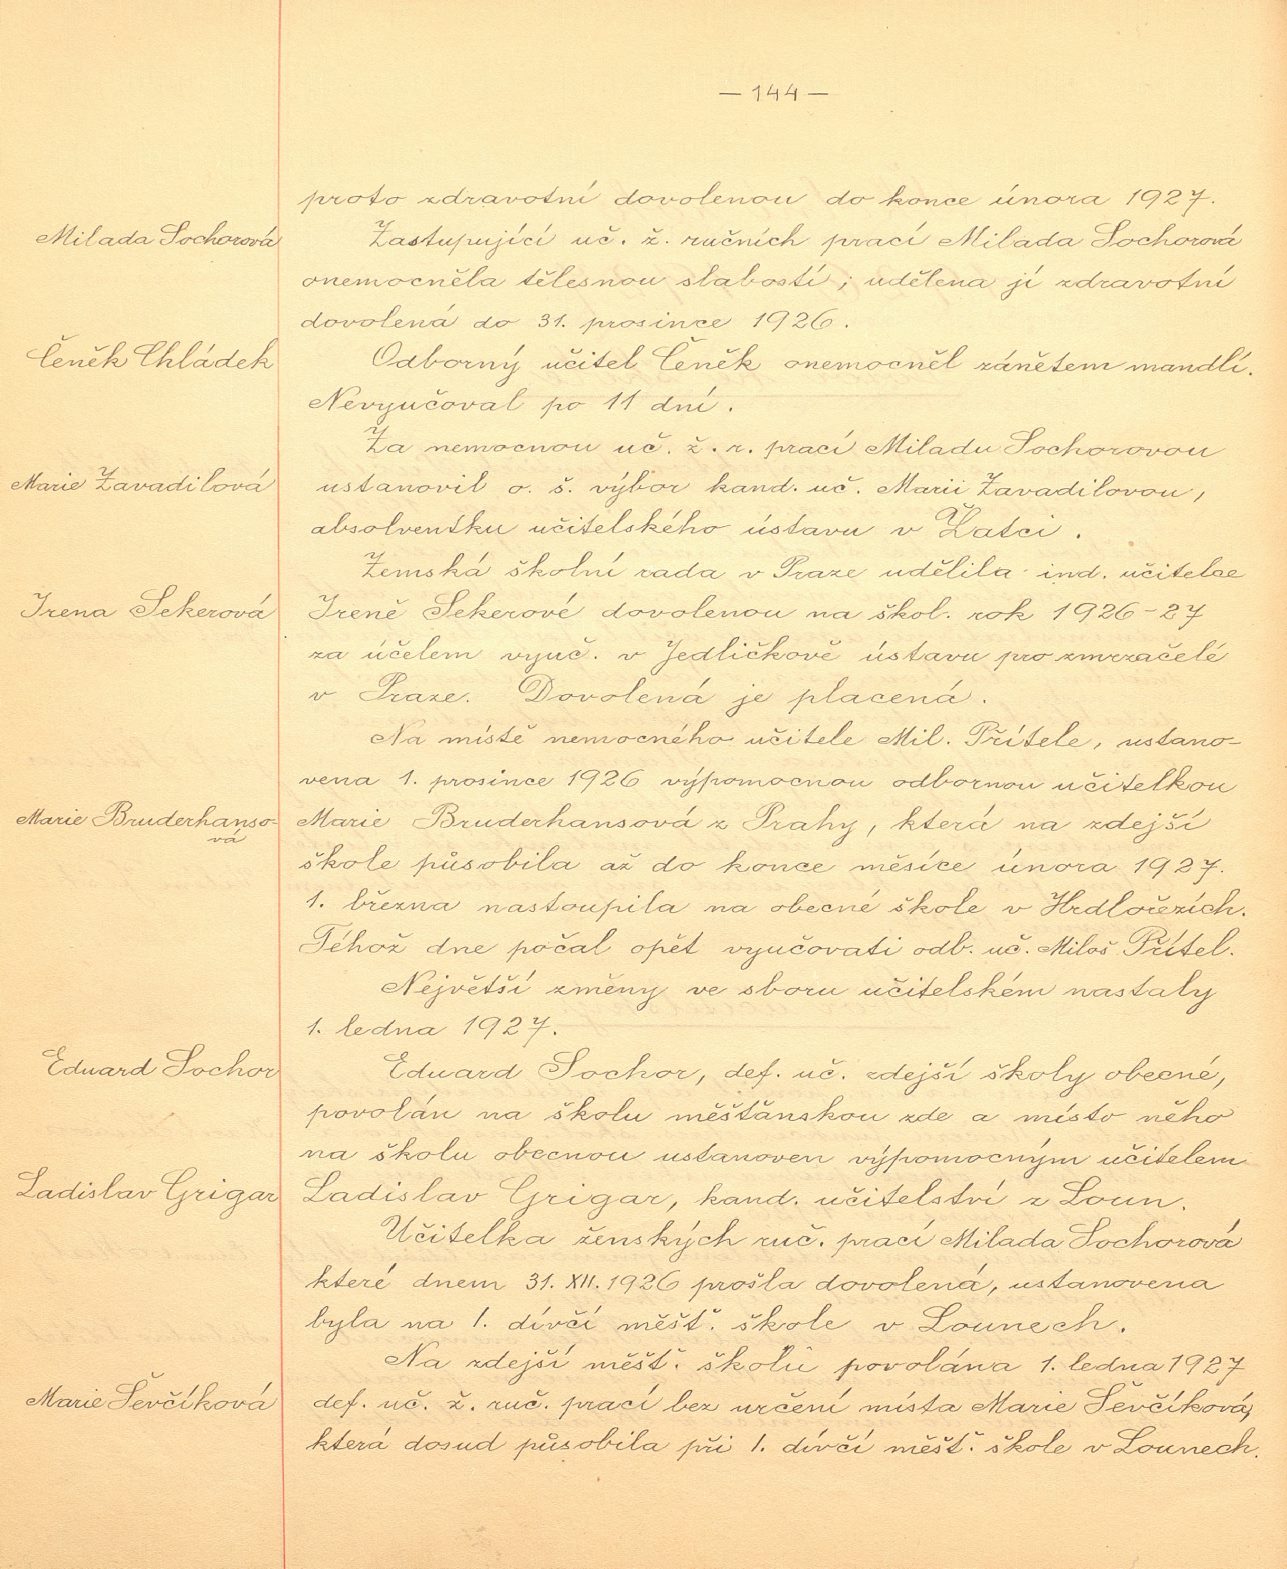 — 144 —
proto zdravotní dovolenou do konce února 1927.
Milada Sochorová
Zastupující uč. ž. ručních prací Milada Sochorová
onemocněla tělesnou slabostí; udělena jí zdravotní
dovolená do 31. prosince 1926.
Čeněk Chládek
Odborný učitel Čeněk onemocněl zánětem mandlí.
Nevyučoval po 11 dní.
Za nemocnou uč. ž. r. prací Miladu Sochorovou
Marie Zavadilová
ustanovil o. š. výbor kand. uč. Marii Zavadilovou,
absolventku učitelského ústavu v Žatci.
Zemská školní rada v Praze udělila ind. učitelce
Irena Sekerová
Ireně Sekerové dovolenou na škol. rok 1926-27
za účelem vyuč. v Jedličkově ústavu pro zmrzačelé
v Praze. Dovolená je placená.
Na místě nemocného učitele Mil. Přítele, ustano-
vena 1. prosince 1926 výpomocnou odbornou učitelkou
Marie Bruderhanso-
vá
Marie Bruderhansová z Prahy, která na zdejší
škole působila až do konce měsíce února 1927.
1. března nastoupila na obecné škole v Hrdlořezích.
Téhož dne počal opět vyučovati odb. uč. Miloš Přítel.
Největší změny ve sboru učitelském nastaly
1. ledna 1927.
Eduard Sochor
Eduard Sochor, def. uč. zdejší školy obecné,
povolán na školu měšťanskou zde a místo něho
na školu obecnou ustanoven výpomocným učitelem
Ladislav Grigar
Ladislav Grigar, kand. učitelství z Loun.
Učitelka ženských ruč. prací Milada Sochorová
které dnem 31. XII. 1926 prošla dovolená, ustanovena
byla na 1. dívčí měšť. škole v Lounech.
Na zdejší měšť. školu povolána 1. ledna 1927
Marie Ševčíková
def. uč. ž. ruč. prací bez určení místa Marie Ševčíková,
která dosud působila při 1. dívčí měšť. škole v Lounech.